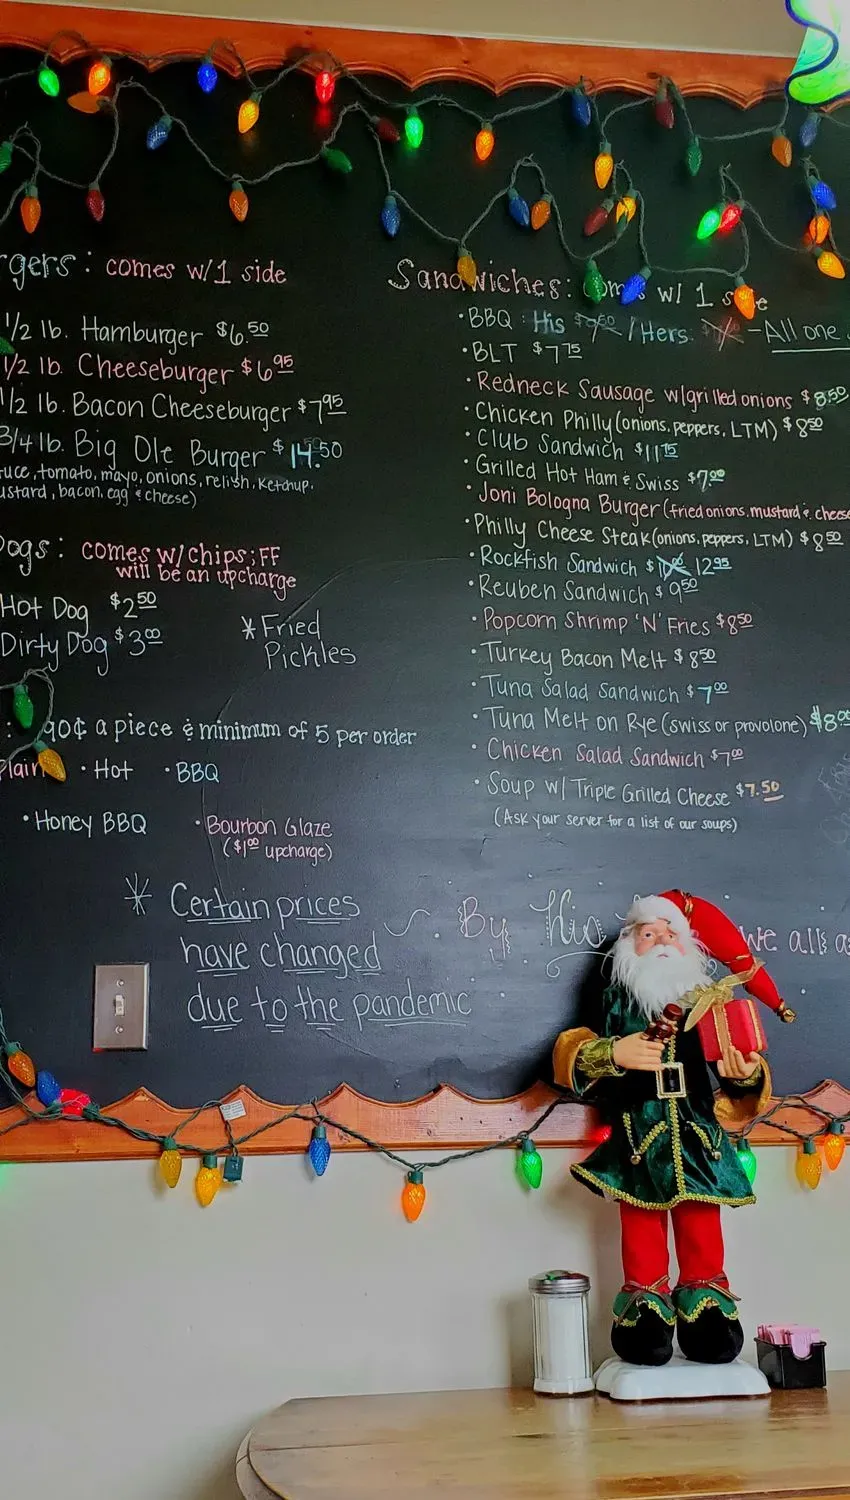 rgers: comes w/1 side
1/2 lb. Hamburger $6.50
1/2 lb. Cheeseburger $6.95
1/2 lb. Bacon Cheeseburger $7.95
3/4 lb. Big Ole Burger $14.50
tuce, tomato, mayo, onions, relish, Ketchup,
ustard, bacon, egg & cheese)
Dogs: comes w/ chips; FF
will be an upcharge
Hot Dog $2.50
Dirty Dog $3.00
* Fried
Pickles
: 90¢ a piece & minimum of 5 per order
Plain • Hot • BBQ
• Honey BBQ • Bourbon Glaze
($1.00 upcharge)
Sandwiches: comes w/ 1 side
• BBQ: His / Hers: - All one
• BLT $7.75
• Redneck Sausage w/grilled onions $8.50
• Chicken Philly (onions, peppers, LTM) $8.50
• Club Sandwich $11.75
• Grilled Hot Ham & Swiss $7.00
• Joni Bologna Burger (fried onions, mustard & cheese
• Philly Cheese Steak (onions, peppers, LTM) $8.50
• Rockfish Sandwich $ 12.95
• Reuben Sandwich $9.50
• Popcorn Shrimp 'N' Fries $8.50
• Turkey Bacon Melt $8.50
• Tuna Salad Sandwich $7.00
• Tuna Melt on Rye (swiss or provolone) $8.00
• Chicken Salad Sandwich $7.00
• Soup w/ Triple Grilled Cheese $7.50
(Ask your server for a list of our soups)
* Certain prices
have changed
due to the pandemic
By His we all a